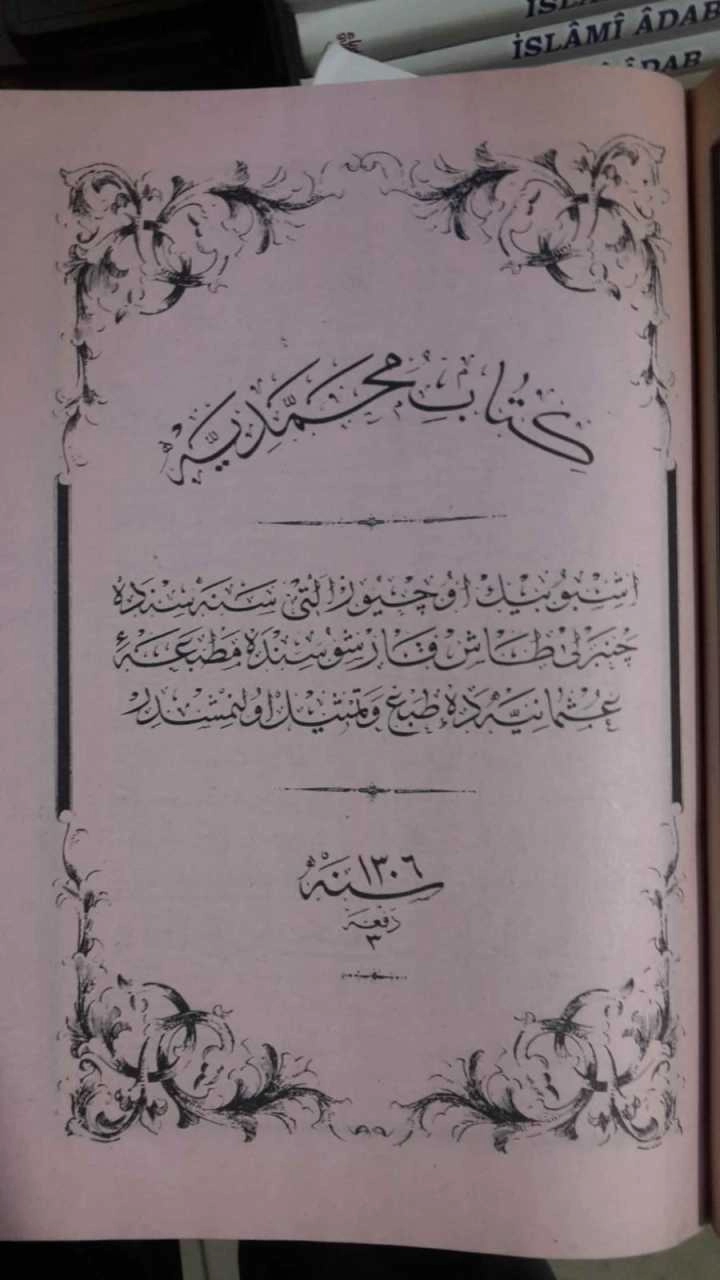 İSL
İSLÂMÎ ÂDAB
ÂDAB
كِتَابِ مُحَمَّدِيَّه
اشبو بيك اوچيوز التى سنه سنده
چنبرلى طاش قارشوسنده مطبعهٔ
عثمانيه ده طبع و تمثيل اولنمشدر
سنه ١٣٠٦
دفعه
٣